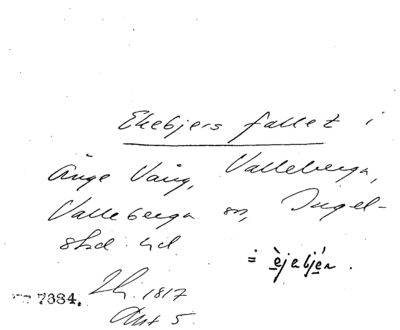 Ekebjers fallet i
Änge Vång, Valleberga,
Valleberga sn, Ingel-
stad hd
= èjebjér.
7384. Lh. 1817
Akt 5